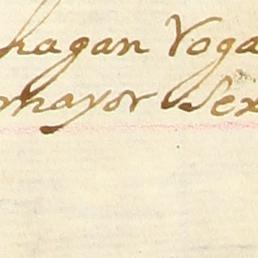 hagan Voga
mayor Sex